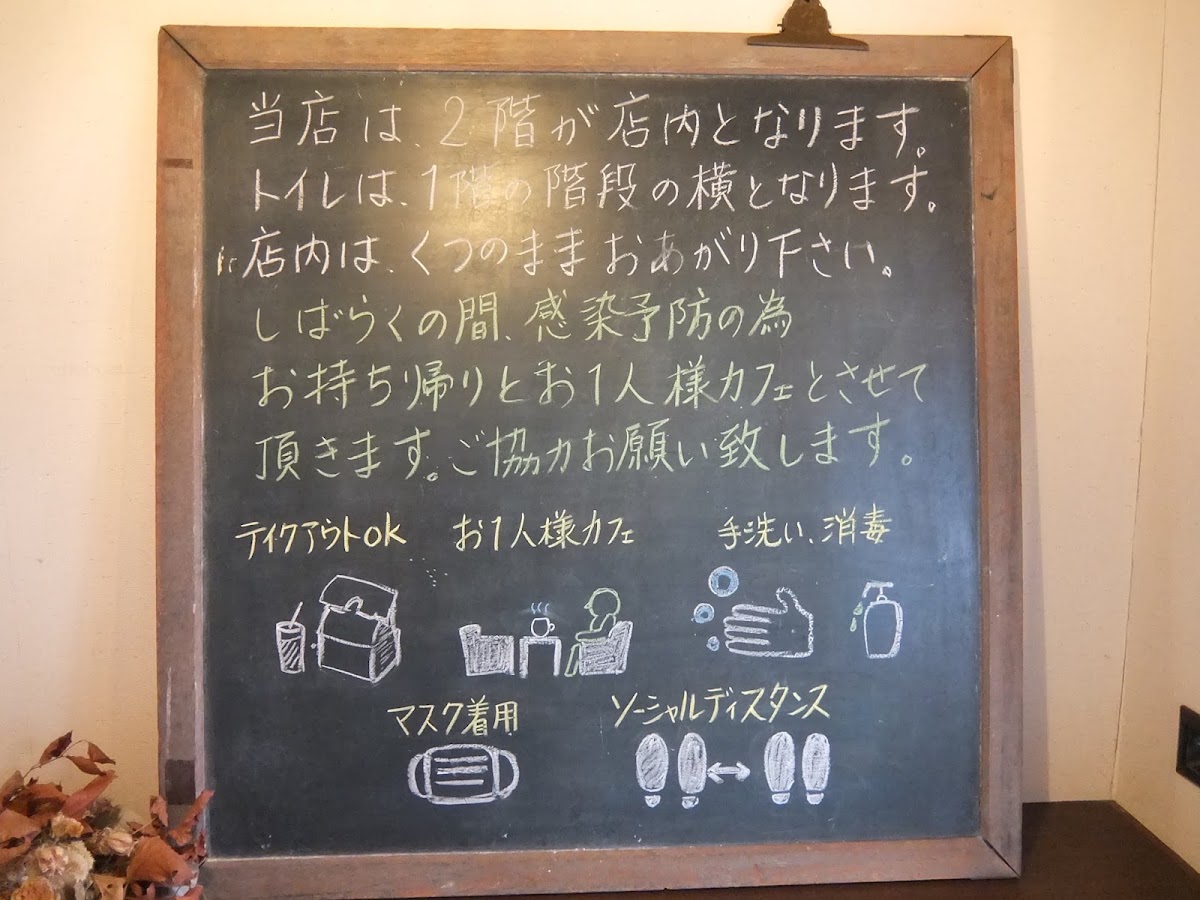 当店は、2階が店内となります。
トイレは、1階の階段の横となります。
店内は、くつのままおあがり下さい。
しばらくの間、感染予防の為
お持ち帰りとお1人様カフェとさせて
頂きます。ご協力お願い致します。
テイクアウトok
お1人様カフェ
手洗い、消毒
マスク着用
ソーシャルディスタンス